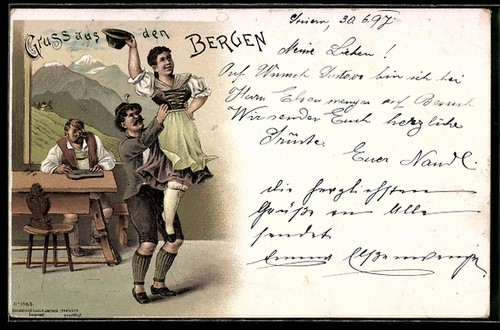 Gruss aus den BERGEN
30.6.97.
Meine Lieben!
Auf Wunsch bin ich bei
Herrn auf Besuch
Wir senden Euch herzliche
Grüße
Euer Nandl.
Die herzlichsten
Grüße an Alle
sendet